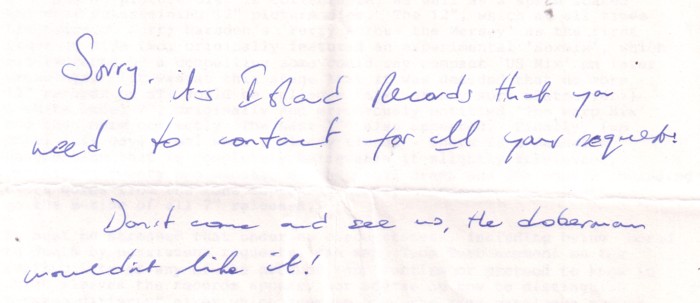 Sorry. it's Island Records that you
need to contact for all your requests.
Don't come and see us, the doberman
wouldn't like it!